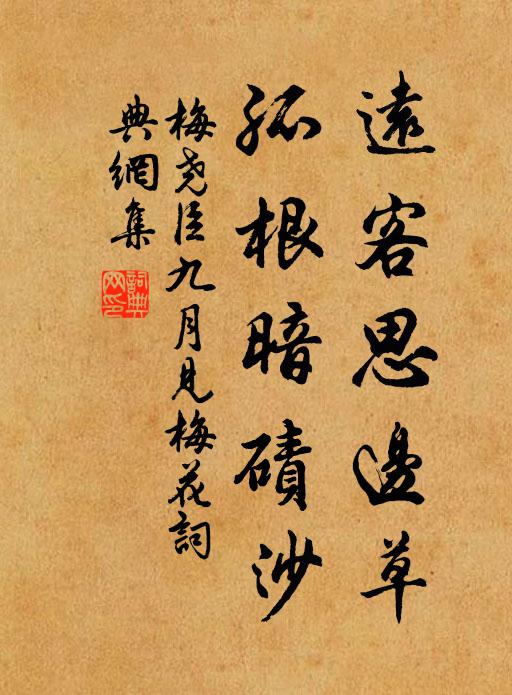 遠客思邊草
孤根暗磧沙
梅尧臣九月見梅花詞
典網集
詞典
网印